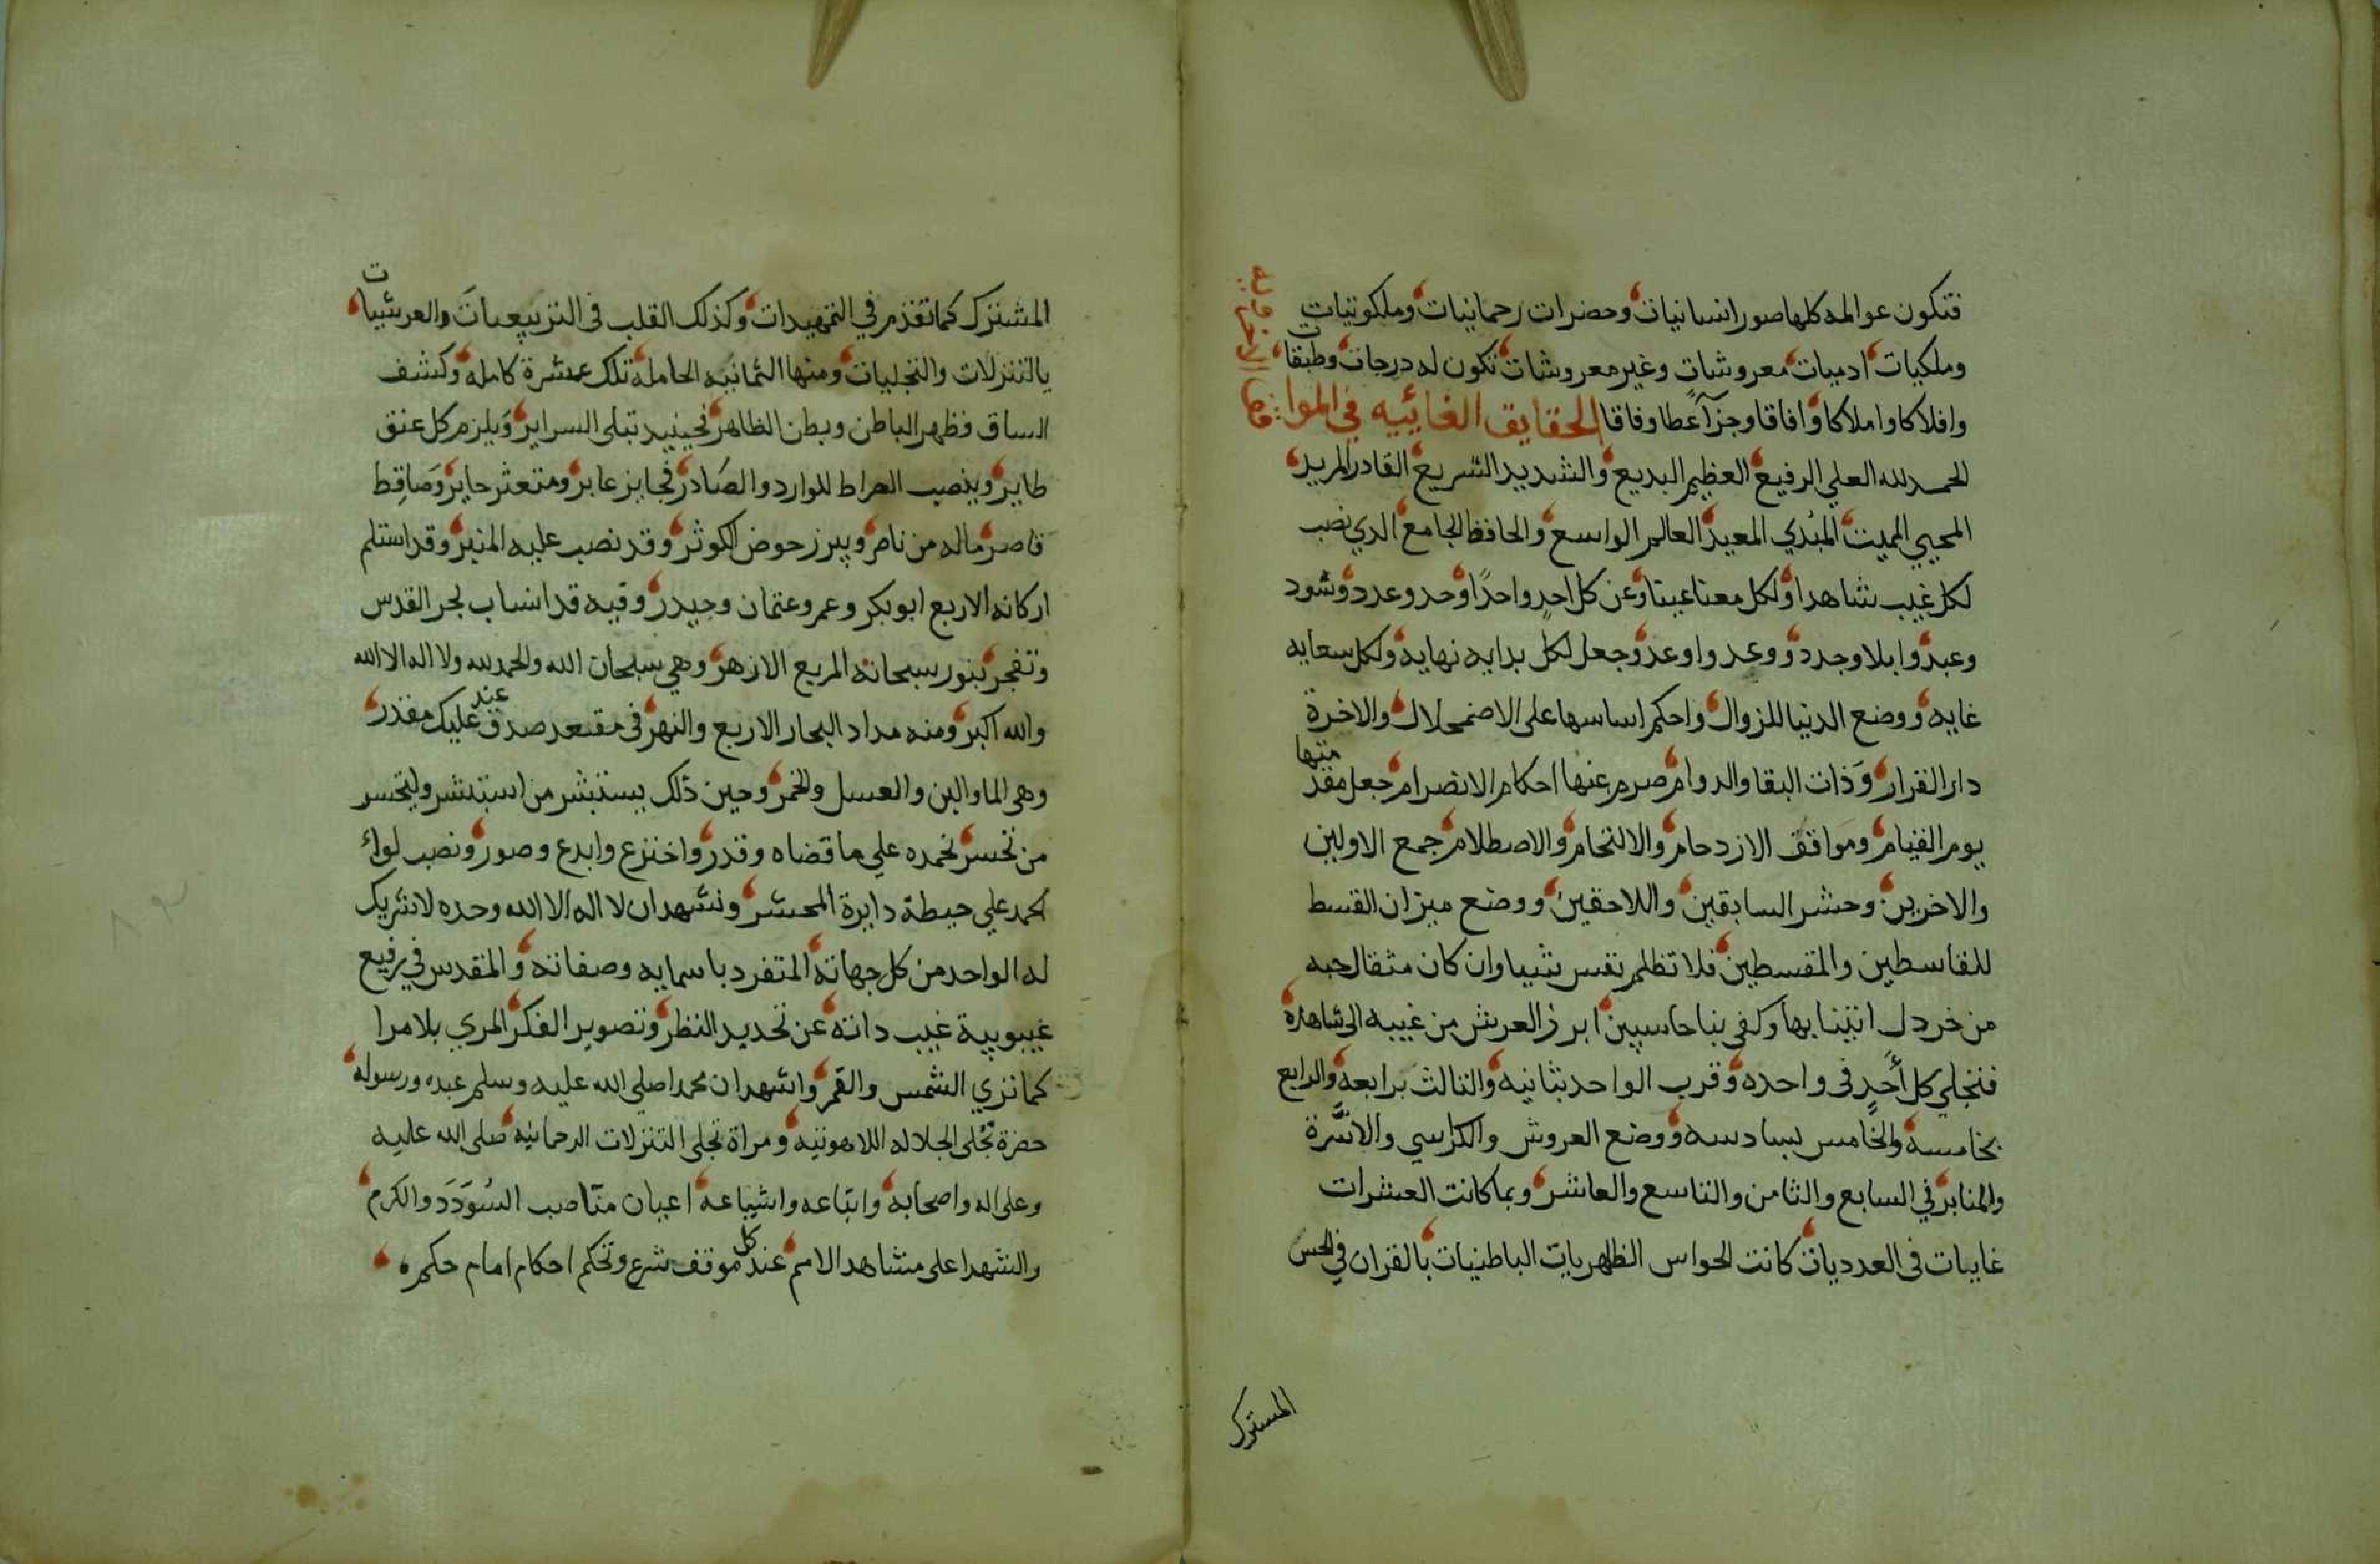 فتكون عوالمه كلها صور انسانيات وحضرات رحمانيات وملكوتيات
وملكيات ادميات معروشات وغير معروشات تكون له درجات وطبقات
وافلاكا واملاكا وافاقا وجزآ عطا وفاقا الحقايق الغائيه في الموا
الحمد لله العلي الرفيع العظيم البديع والشديد السريع القادر المريد
المحيي المميت المبدي المعيد العالم الواسع والحافظ الجامع الذي نصب
لكل غيب شاهدا ولكل معنا عينا وعن كل احد واحدا وحد وعدد وشود
وعبد وابلا وجدد ووعد واوعد وجعل لكل بدايه نهايه ولكل سعايه
غايه ووضع الدنيا للزوال واحكم اساسها على الاضمحلال والاخرة
دار القرار وذات البقا والدوام صرم عنها احكام الانصرام جعل منها مقد
يوم القيام ومواقف الازدحام والالتحام والاصطلام جمع الاولين
والاخرين وحشر السابقين واللاحقين ووضع ميزان القسط
للقاسطين والمقسطين فلا تظلم نفس شيا وان كان مثقال حبه
من خردل اتينا بها وكفى بنا حاسبين ابرز العرش من غيبه الى شاهده
فتجلي كل أحد في واحده وقرب الواحد بثانيه والثالث برابعه والرابع
بخامسه والخامس بسادسه ووضع العروش والكراسي والاسرة
والمنابر في السابع والثامن والتاسع والعاشر وبما كانت العشرات
غايبات في العدديات كانت الحواس الظهريات الباطنيات بالقران في الحس
المشترك
المشترك كما تقدم في التمهيدات وكذلك القلب في التربيعيات والعرشيات
بالتنزلات والتجليات ومنها الثمانيه الحامله تلك عشرة كامله وكشف
الساق فظهر الباطن وبطن الظاهر فحينيد تبلى السراير ويلزم كل عنق
طاير وينصب الصراط للوارد والصادر فجايز عابر ومتعثر حاير وساقط
قاصر ماله من ناصر ويبرز حوض الكوثر وقد نصب عليه المنبر وقد استلم
اركانه الاربع ابو بكر وعمر وعثمان وحيدر وفيه قد انساب بحر القدس
وتفجر بنور سبحاته المربع الازهر وهي سبحان الله والحمد لله ولا اله الا الله
والله اكبر ومنه مداد البحار الاربع والنهر في مقعد صدق عند مليك مقتدر
وهي الما والبن والعسل والخمر وحين ذلك يستبشر من استبشر وليتحسر
من تحسر نحمده علي ما قضاه وقدر واخترع وابدع وصور ونصب لواء
الحمد علي حيطة دايرة المحشر ونشهد ان لا اله الا الله وحده لا شريك
له الواحد من كل جهاته المتفرد باسمايه وصفاته والمقدس في رفيع
غيبوبية غيب ذاته عن تحديد النظر وتصوير الفكر المري بلا مرا
كما نري الشمس والقمر واشهد ان محمدا صلى الله عليه وسلم عبده ورسوله
حضرة تجلى الجلاله اللاهوتيه ومراة تجلى التنزلات الرحمانيه صلى الله عليه
وعلى اله واصحابه واتباعه واشياعه اعيان مناصب السودد والكرم
والشهدا على مشاهد الامم عند كل موقف شرع وتحكم احكام امام حكمه